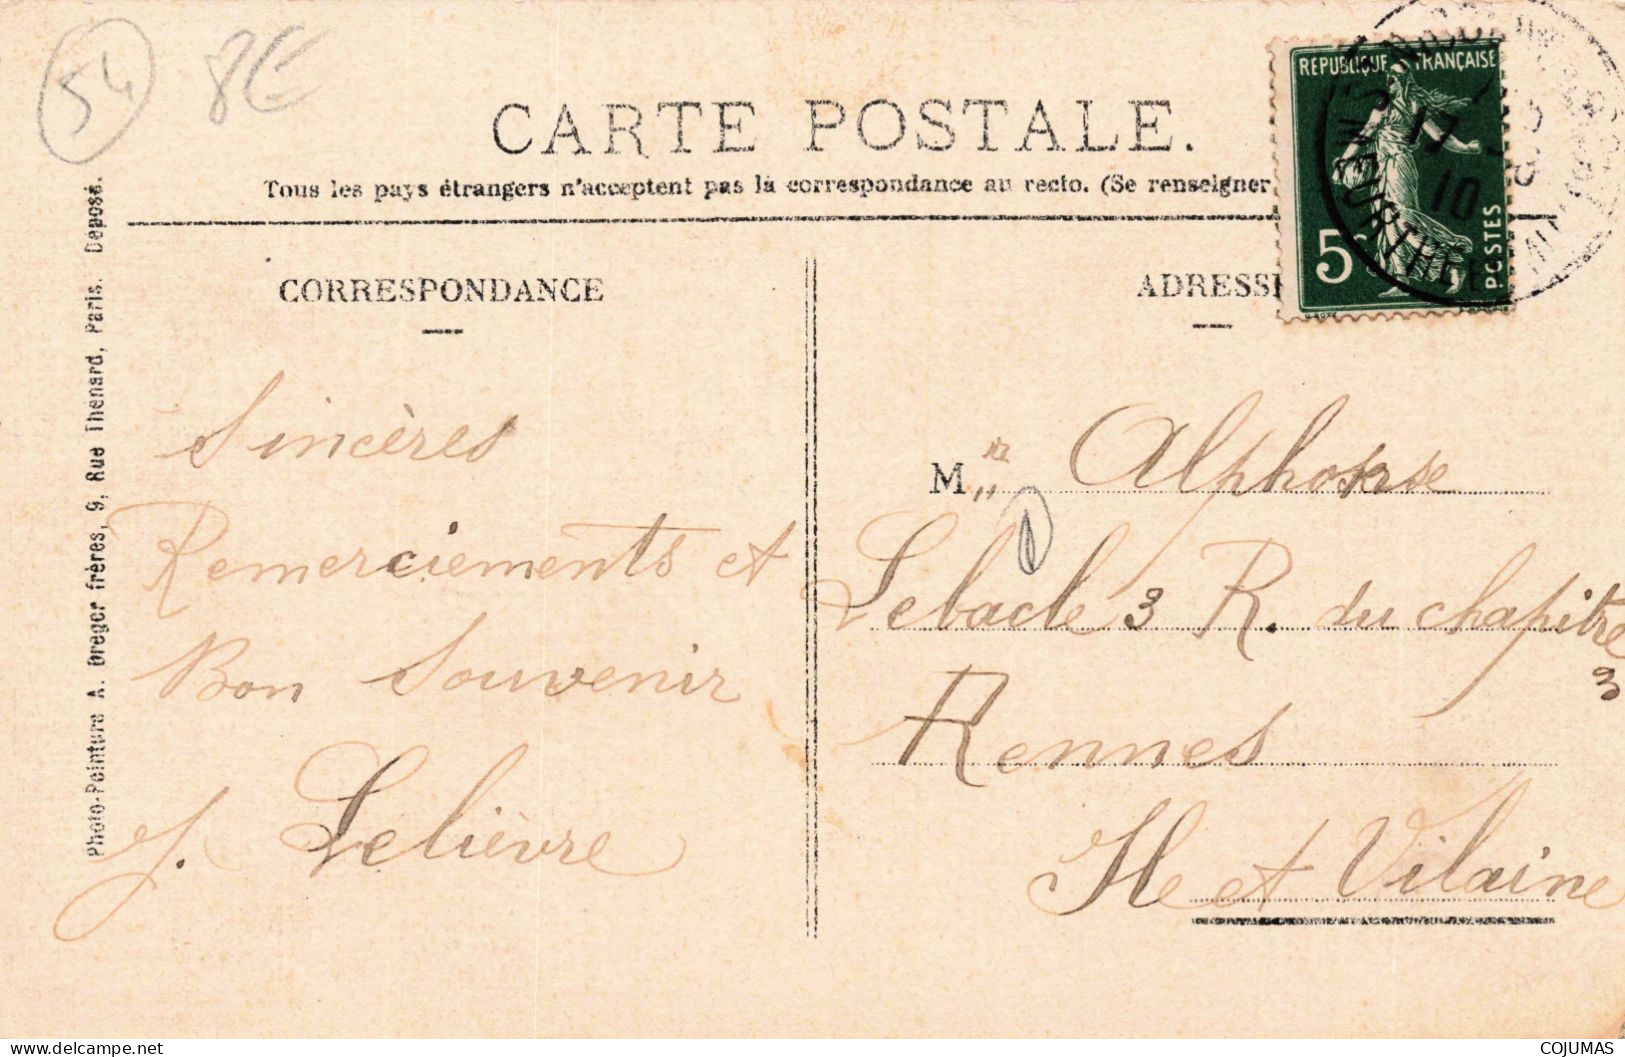 54
8E
CARTE POSTALE.
Tous les pays étrangers n'acceptent pas la correspondance au recto. (Se renseigner
REPUBLIQUE FRANÇAISE
5c
POSTES
17
10
MEURTHE
CORRESPONDANCE
ADRESSE
Sincères
Remerciements et
Bon Souvenir
J. Lelièvre
M Alphonse
Lebacle 3 R. du chapitre
3
Rennes
Ille et Vilaine
Photo-Peinture A. Dreger frères, 9, Rue Thenard, Paris. Déposé.
COJUMAS